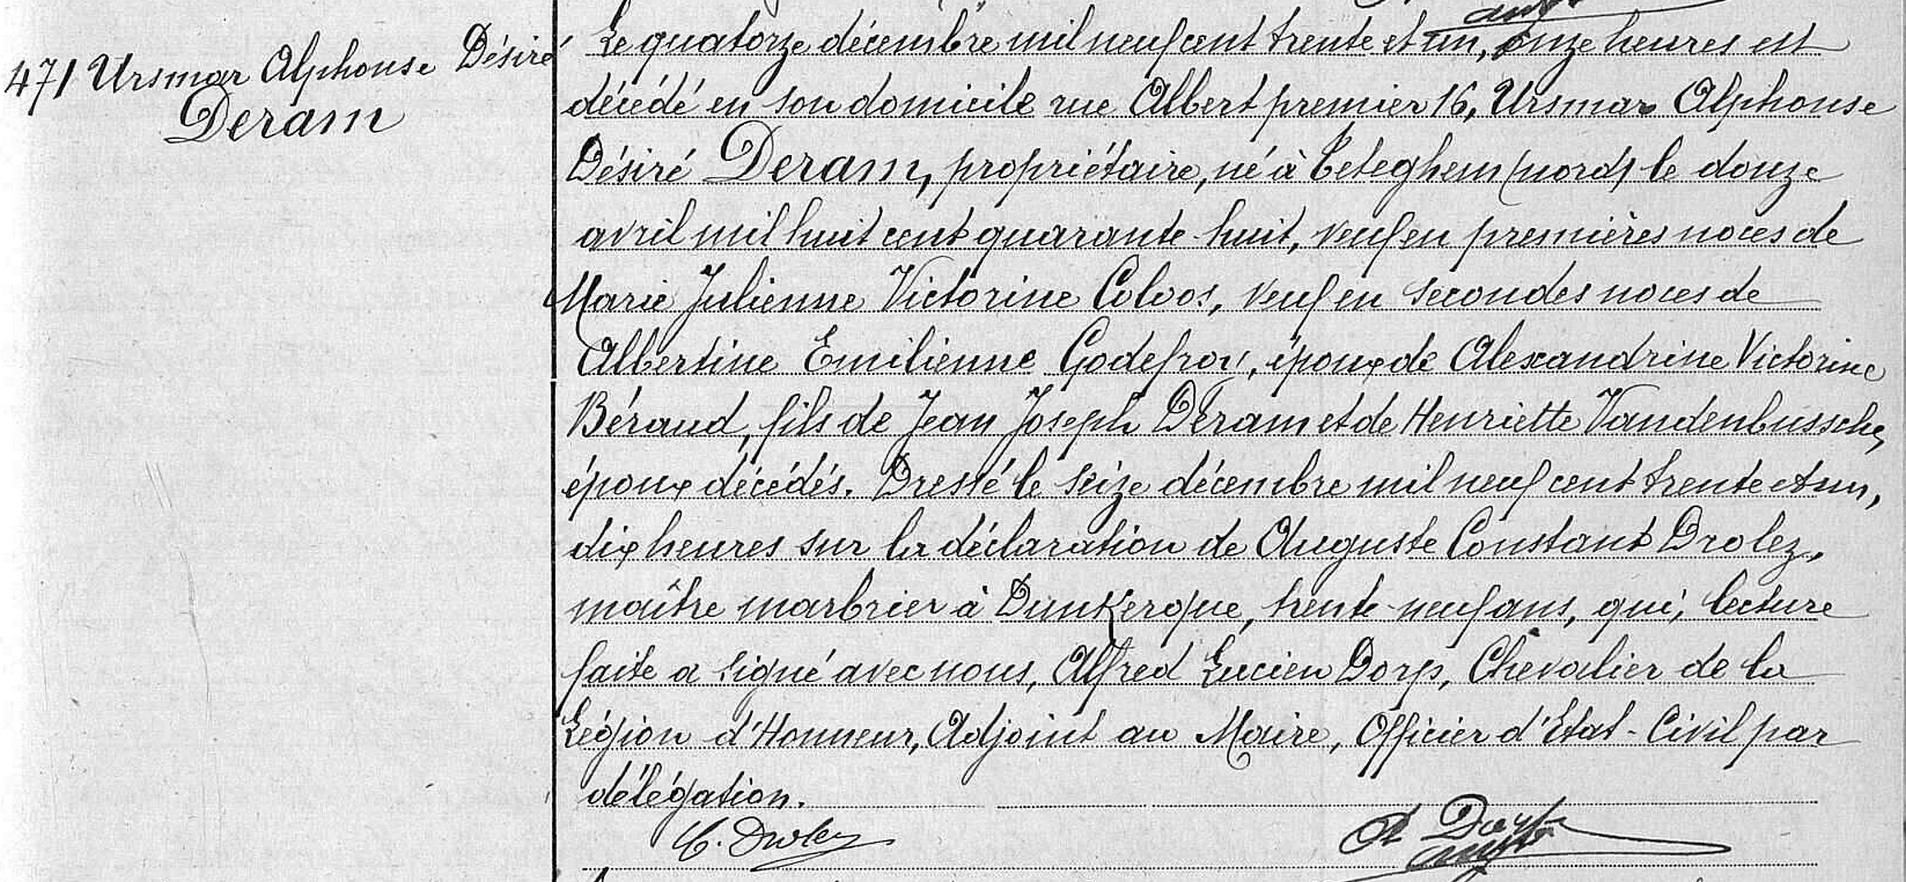 471 Ursmar Alphonse Désiré
Deram
Le quatorze décembre mil neuf cent trente et un, onze heures est
décédé en son domicile rue Albert premier 16, Ursmar Alphonse
Désiré Deram, propriétaire, né à Teteghem (nord) le douze
avril mil huit cent quarante-huit, veuf en premières noces de
Marie Julienne Victorine Coloos, veuf en secondes noces de
Albertine Emilienne Godefroy, époux de Alexandrine Victorine
Béraud, fils de Jean Joseph Deram et de Henriette Vandenbussche,
époux décédés. Dressé le seize décembre mil neuf cent trente et un,
dix heures sur la déclaration de Auguste Constant Drolez,
maître marbrier à Dunkerque, trente-neuf ans, qui, lecture
faite a signé avec nous, Alfred Lucien Dorp, Chevalier de la
Légion d'Honneur, Adjoint au Maire, Officier d'Etat-Civil par
délégation.
C. Drolez
A Dorp